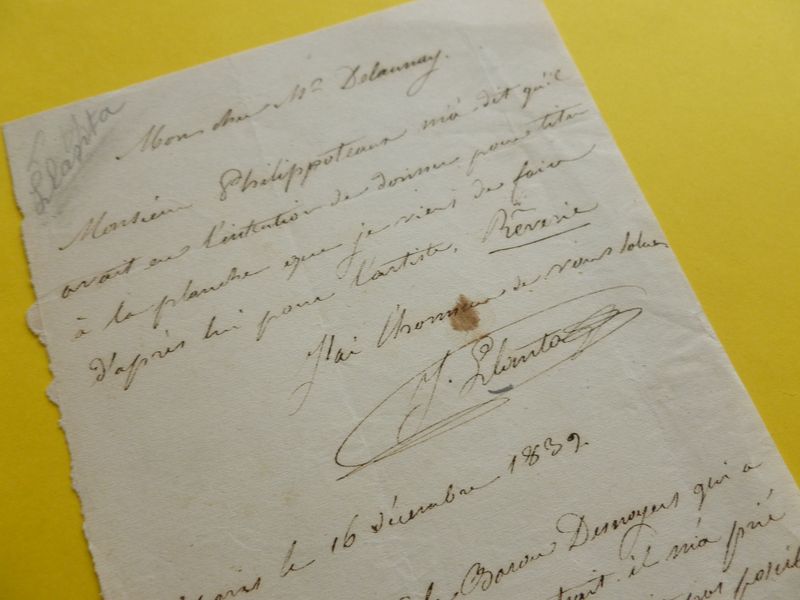 Llanta
Mon cher Mr Delaunay.
Monsieur Philippoteaux m'a dit qu'il
avait eu l'intention de donner pour titre
à la planche que je viens de faire
d'après lui pour l'artiste, Rêverie
J'ai l'honneur de vous saluer
J. Llanta
le 16 décembre 1839.
Baron Desnoyers qui a
il m'a prié